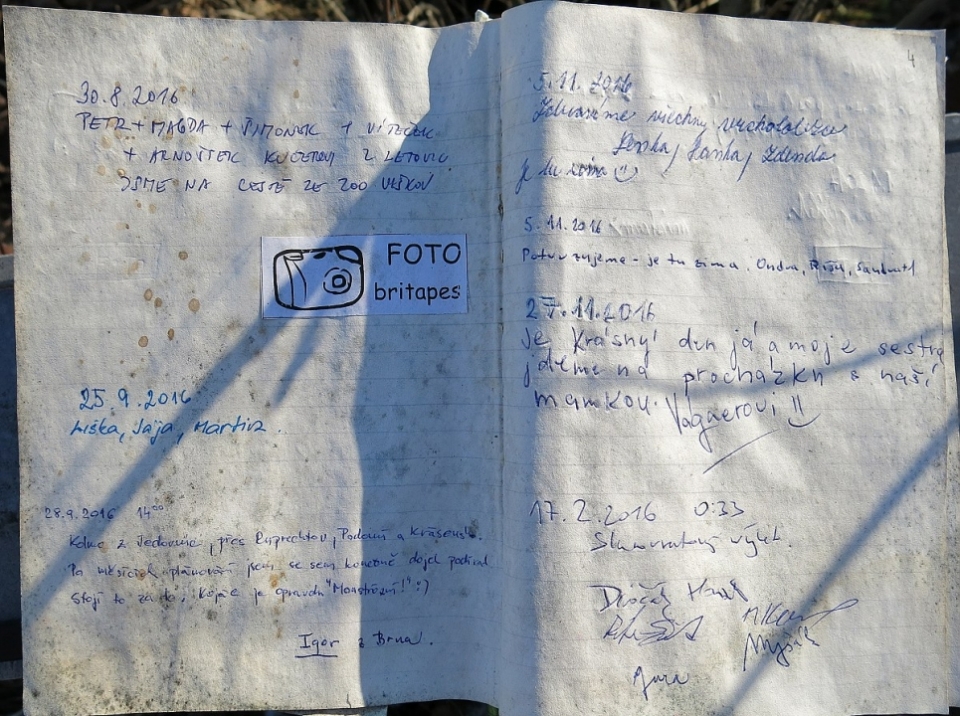 30.8.2016
PETR + MAGDA + ŠIMONEK + VÍTEČEK
+ ARNOŠTEK KUČEROVI Z LETOVIC
JSME NA CESTĚ ZE 200 VRŠKŮ
FOTO
britapes
25.9.2016
Liška, Jája, Martin
28.9.2016 14⁰⁰
Kolmo z Jedovnic, přes Ruprechtov, Podomí a Krásensko.
Po měsících plánování jsem se sem konečně dojel podívat
Stojí to za to, kopec je opravdu "Monstrózní!" :)
Igor z Brna.
4
5.11.2016
Zdravíme všechny vrcholaře
Lenka, Zdenda
je tu zima
5.11.2016
Potvrzujeme - je tu zima. Ondra,
27.11.2016
je krásný den já a moje sestra
jdeme na procházku s naší
mamkou. Vágnerovi !!
17.2.2016 0:33
Slunovratový výlet.
Dvořák
Myšák
Jura